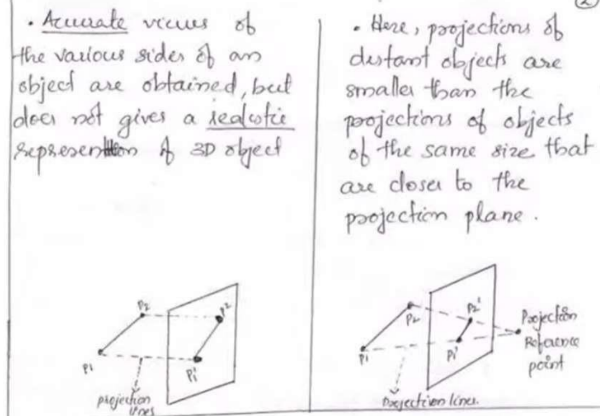 2
• Accurate views of
the various sides of an
object are obtained, but
does not gives a realistic
represention of 3D object
P2
P2'
P1
P1'
projection
lines
• Here, projections of
distant objects are
smaller than the
projections of objects
of the same size that
are closer to the
projection plane.
P2
P2'
P1
P1'
Projection
Reference
point
Projection lines.